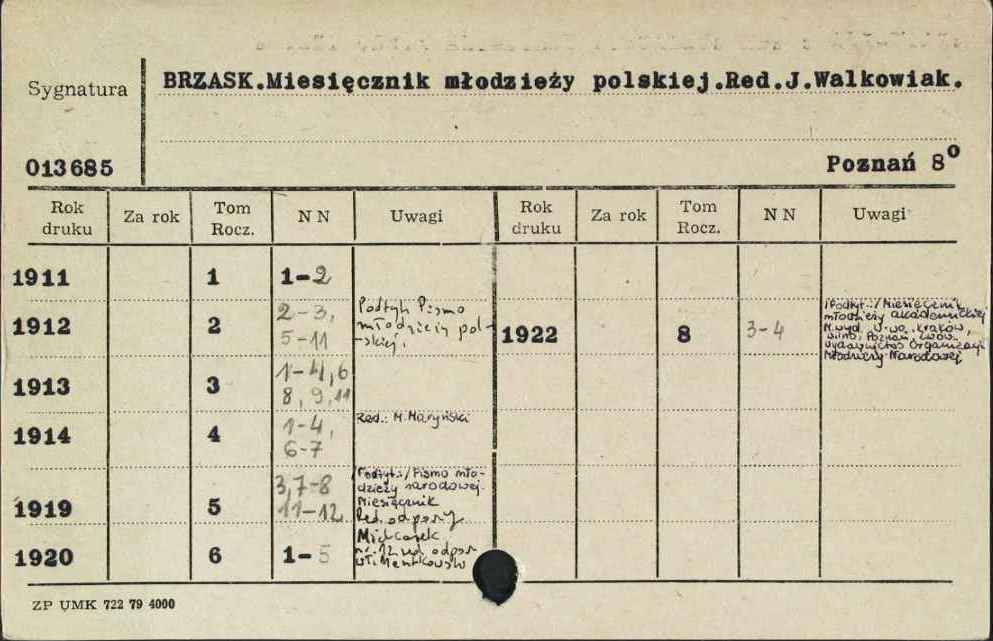 Sygnatura
BRZASK.Miesięcznik młodzieży polskiej.Red.J.Walkowiak.
013685
Poznań 8⁰
Rok druku Za rok Tom Rocz. N N Uwagi Rok druku Za rok Tom Rocz. N N Uwagi
1911 1 1-2
1912 2 2-3,
5-11
Podtyt. Pismo
młodzieży pol-
-skiej.
1922 8 3-4
/Podtyt.:/ Miesięcznik
młodzieży akademickiej
M. wyd. W-wa, Kraków,
Wilno, Poznań, Lwów.
Wydawnictwo Organizacji
Młodzieży Narodowej
1913 3 1-4,6
8,9,11
1914 4 1-4,
6-7
Red.: M. Maryński
1919 5 3,7-8
11-12
/Podtyt.:/ Pismo mło-
dzieży narodowej.
Miesięcznik
Red. odpow.
1920 6 1-5
nr. 12 red. odpow
Wł.
ZP UMK 722 79 4000